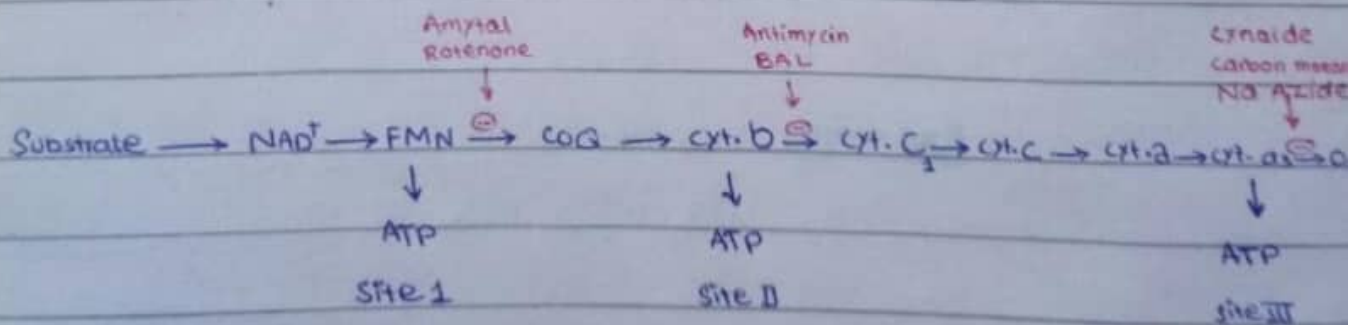 Amytal
Rotenone
Antimycin
BAL
Cynaide
Carbon mono
Na Azide
Substrate → NAD⁺ → FMN ⊖→ COQ → cyt. b ⊖→ cyt. C₁ → cyt. c → cyt. a → cyt. a₃ ⊖→ O
ATP
ATP
ATP
Site 1
Site II
site III